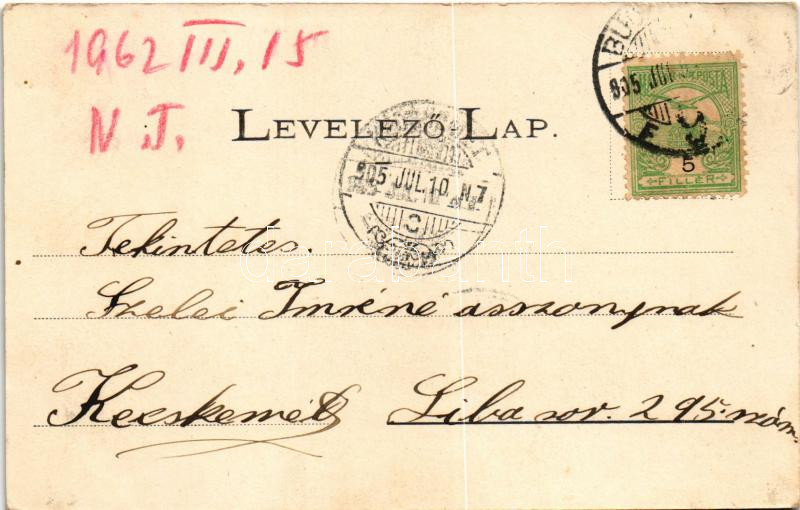 1962 III, 15
N. J.
LEVELEZŐ-LAP.
905 JUL. 10. N. 7
C
905 JUL.
E
MAGY. KIR. POSTA
5
FILLÉR
Tekintetes.
Szelei Imréné asszonynak
Kecskemét
Liba sor. 295. szám.